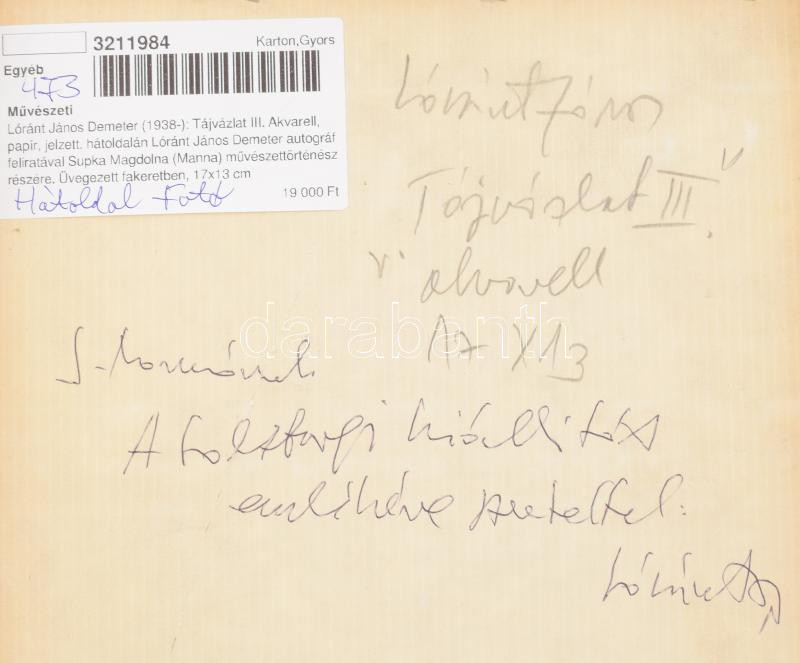 3211984
Karton,Gyors
Egyéb
473
Művészeti
Lóránt János Demeter (1938-): Tájvázlat III. Akvarell,
papír, jelzett. hátoldalán Lóránt János Demeter autográf
feliratával Supka Magdolna (Manna) művészettörténész
részére. Üvegezett fakeretben, 17x13 cm
Hátoldal Fotó
19 000 Ft
Lóránt János
Tájvázlat III.
akvarell
17 X 13
darabanth
A Salzburgi kiállítás
emlékéve szeretettel:
Lóránt